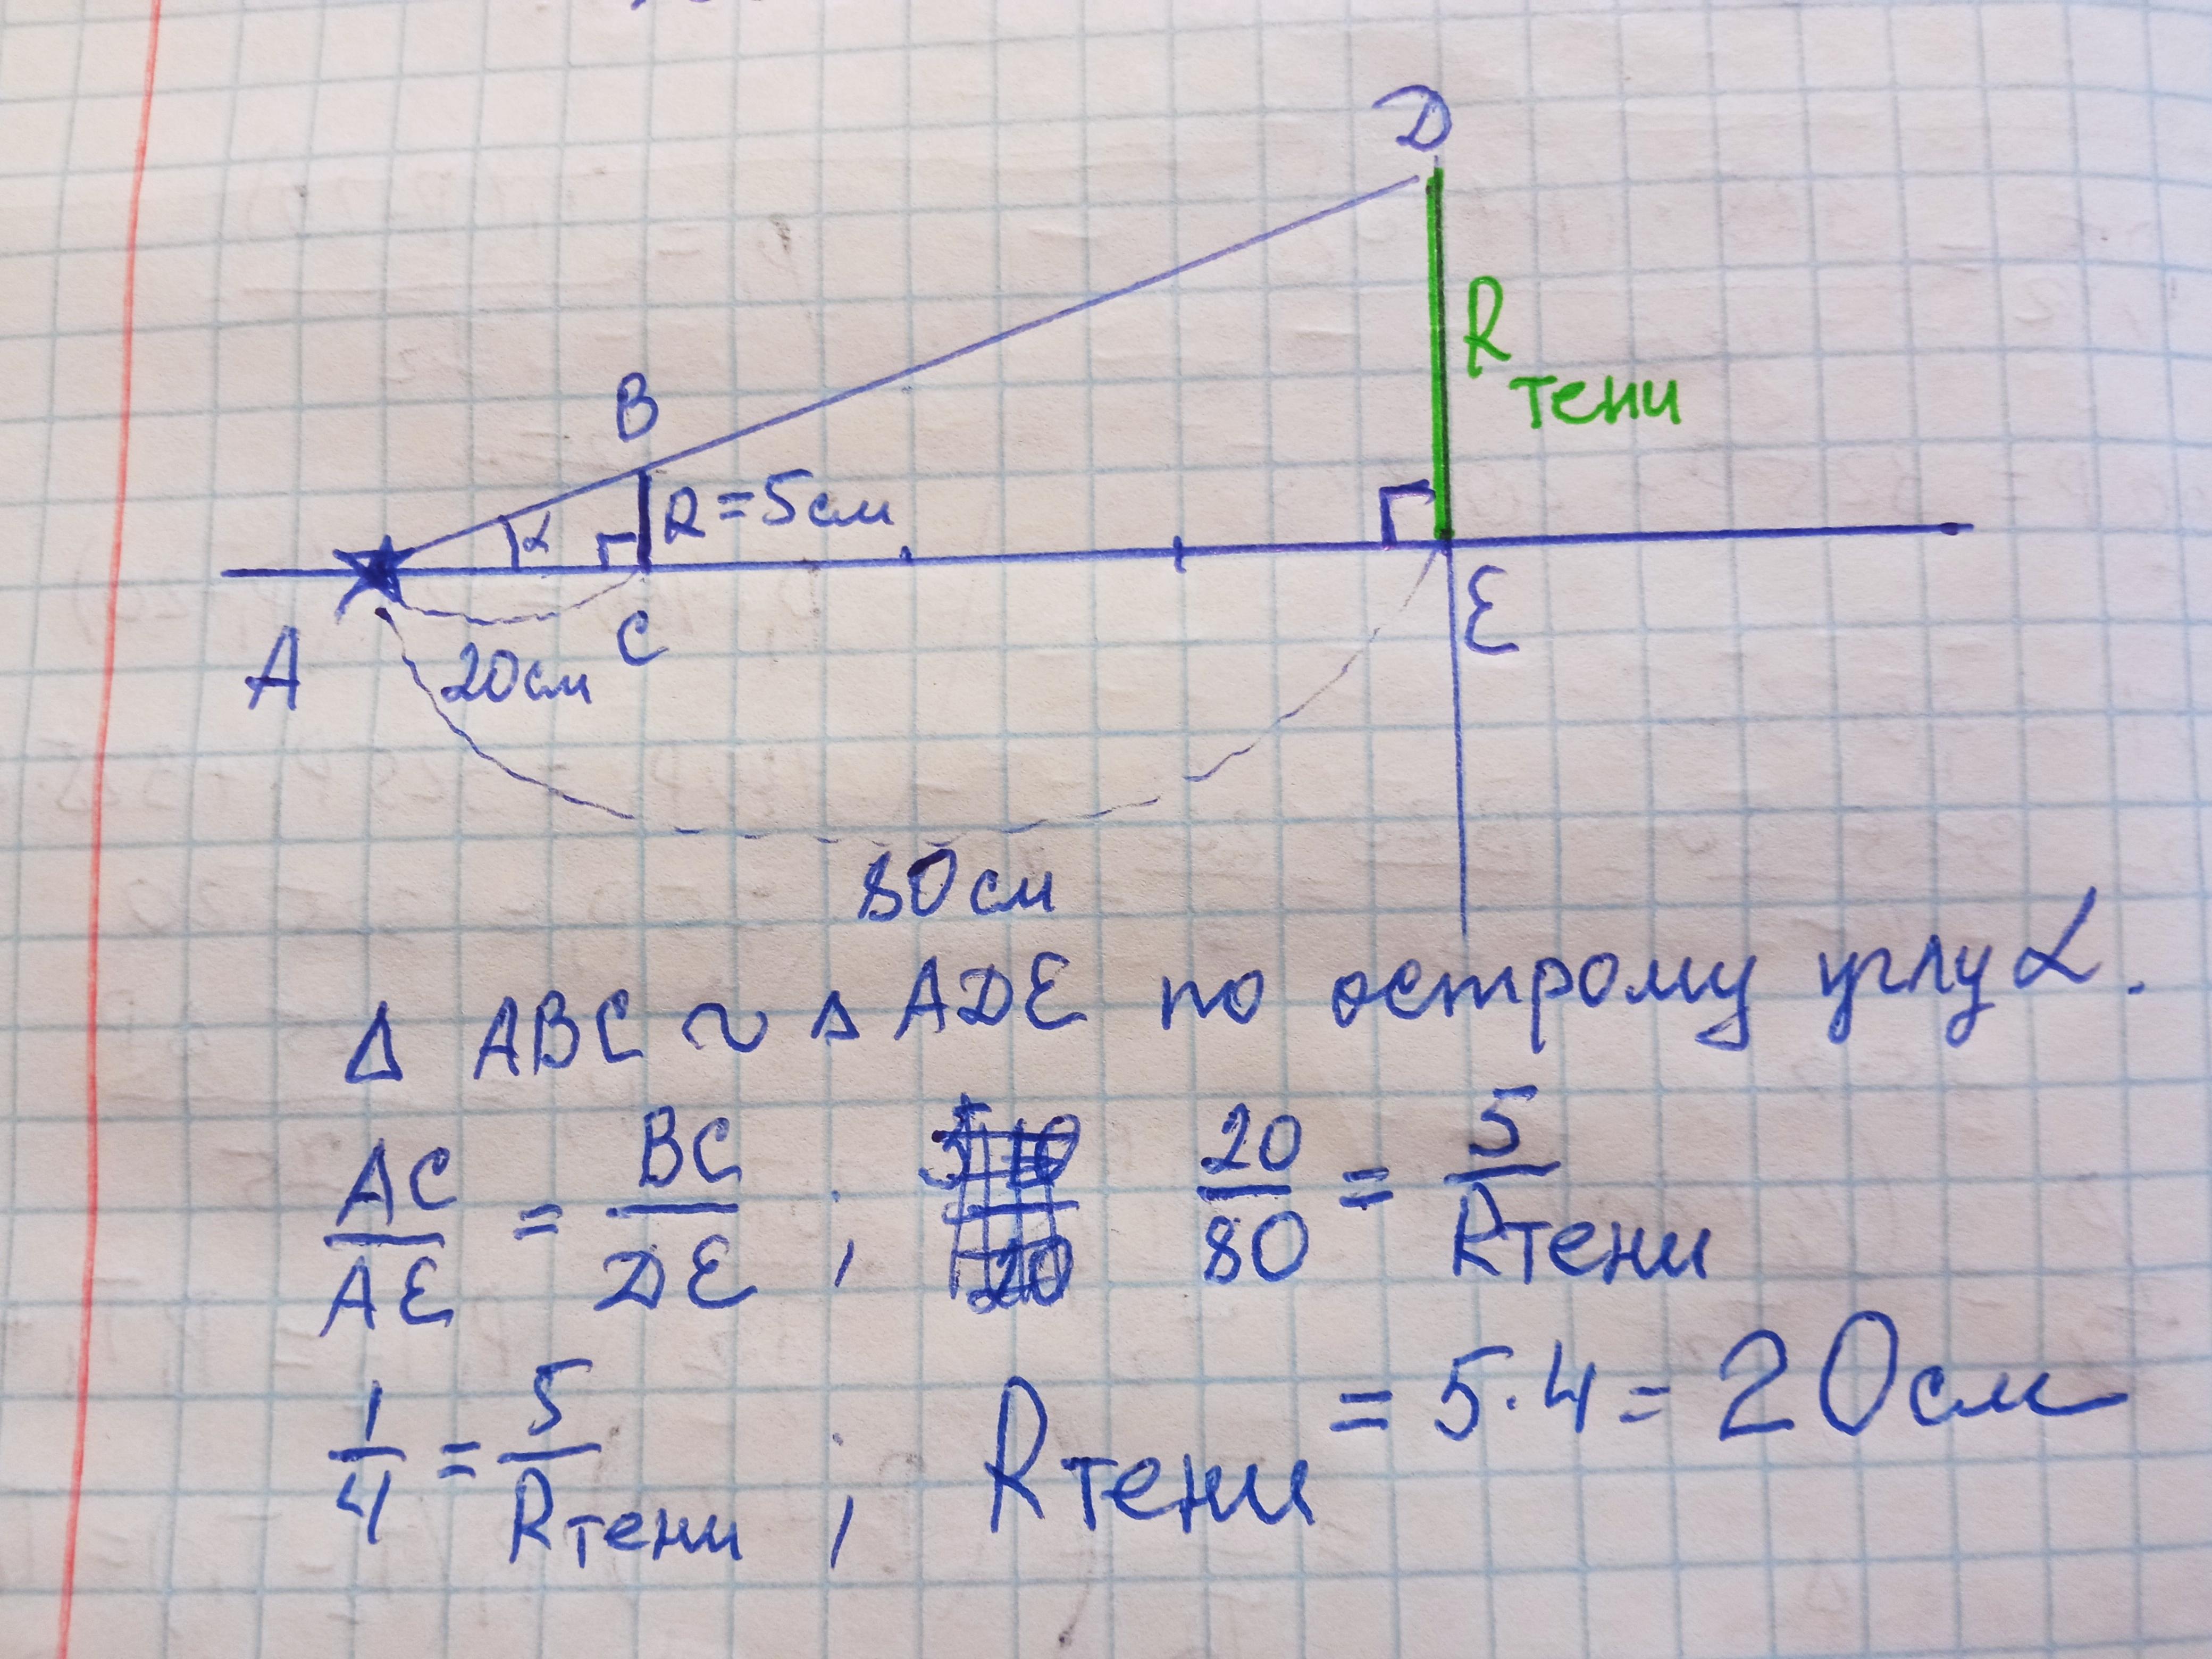 D
R тени
B
R = 5 см
α
A
20 см
C
E
80 см
Δ ABC ~ Δ ADE по острому углу α.
AC/AE = BC/DE ; 20/80 = 5/Rтени
1/4 = 5/Rтени ; Rтени = 5·4 = 20 см